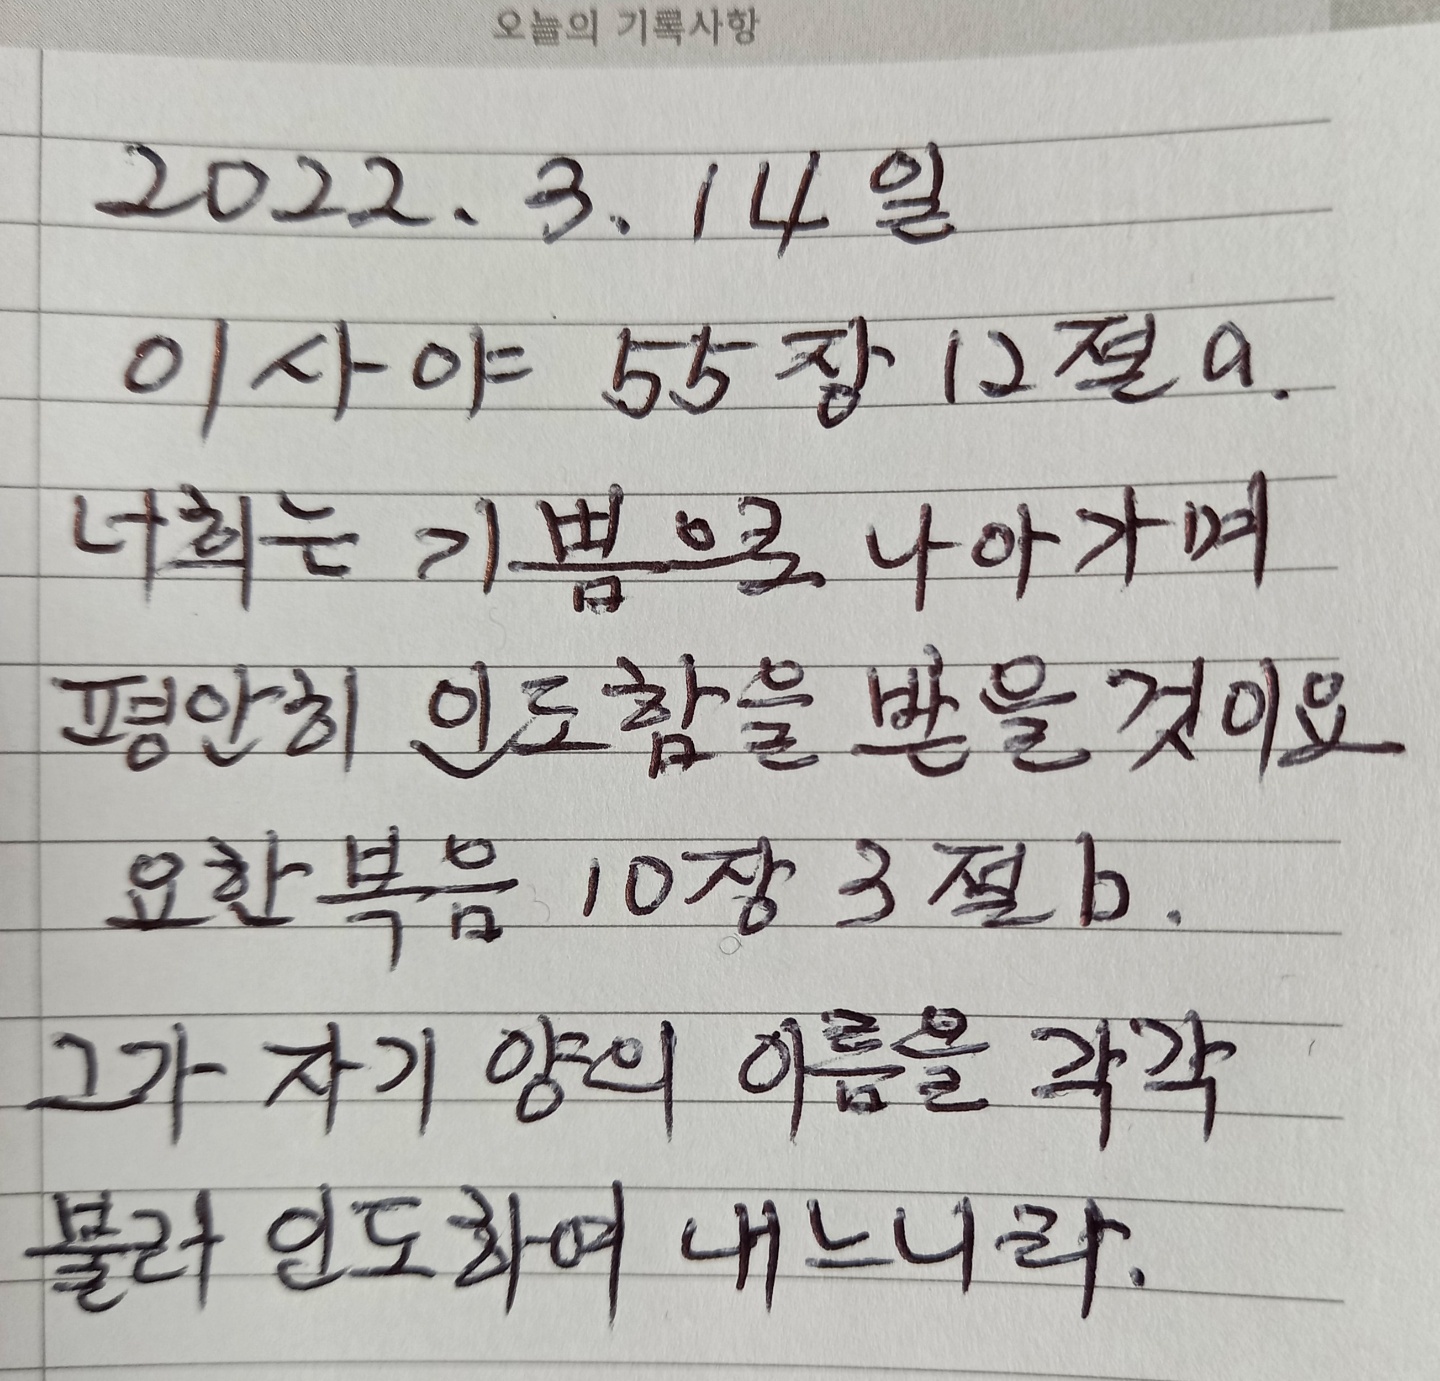 오늘의 기록사항
2022. 3. 14일
이사야 55장 12절 a.
너희는 기쁨으로 나아가며
평안히 인도함을 받을 것이요
요한복음 10장 3절 b.
그가 자기 양의 이름을 각각
불러 인도하여 내느니라.